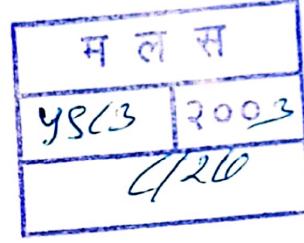 म ल स
५९८३ २००३
८/२६